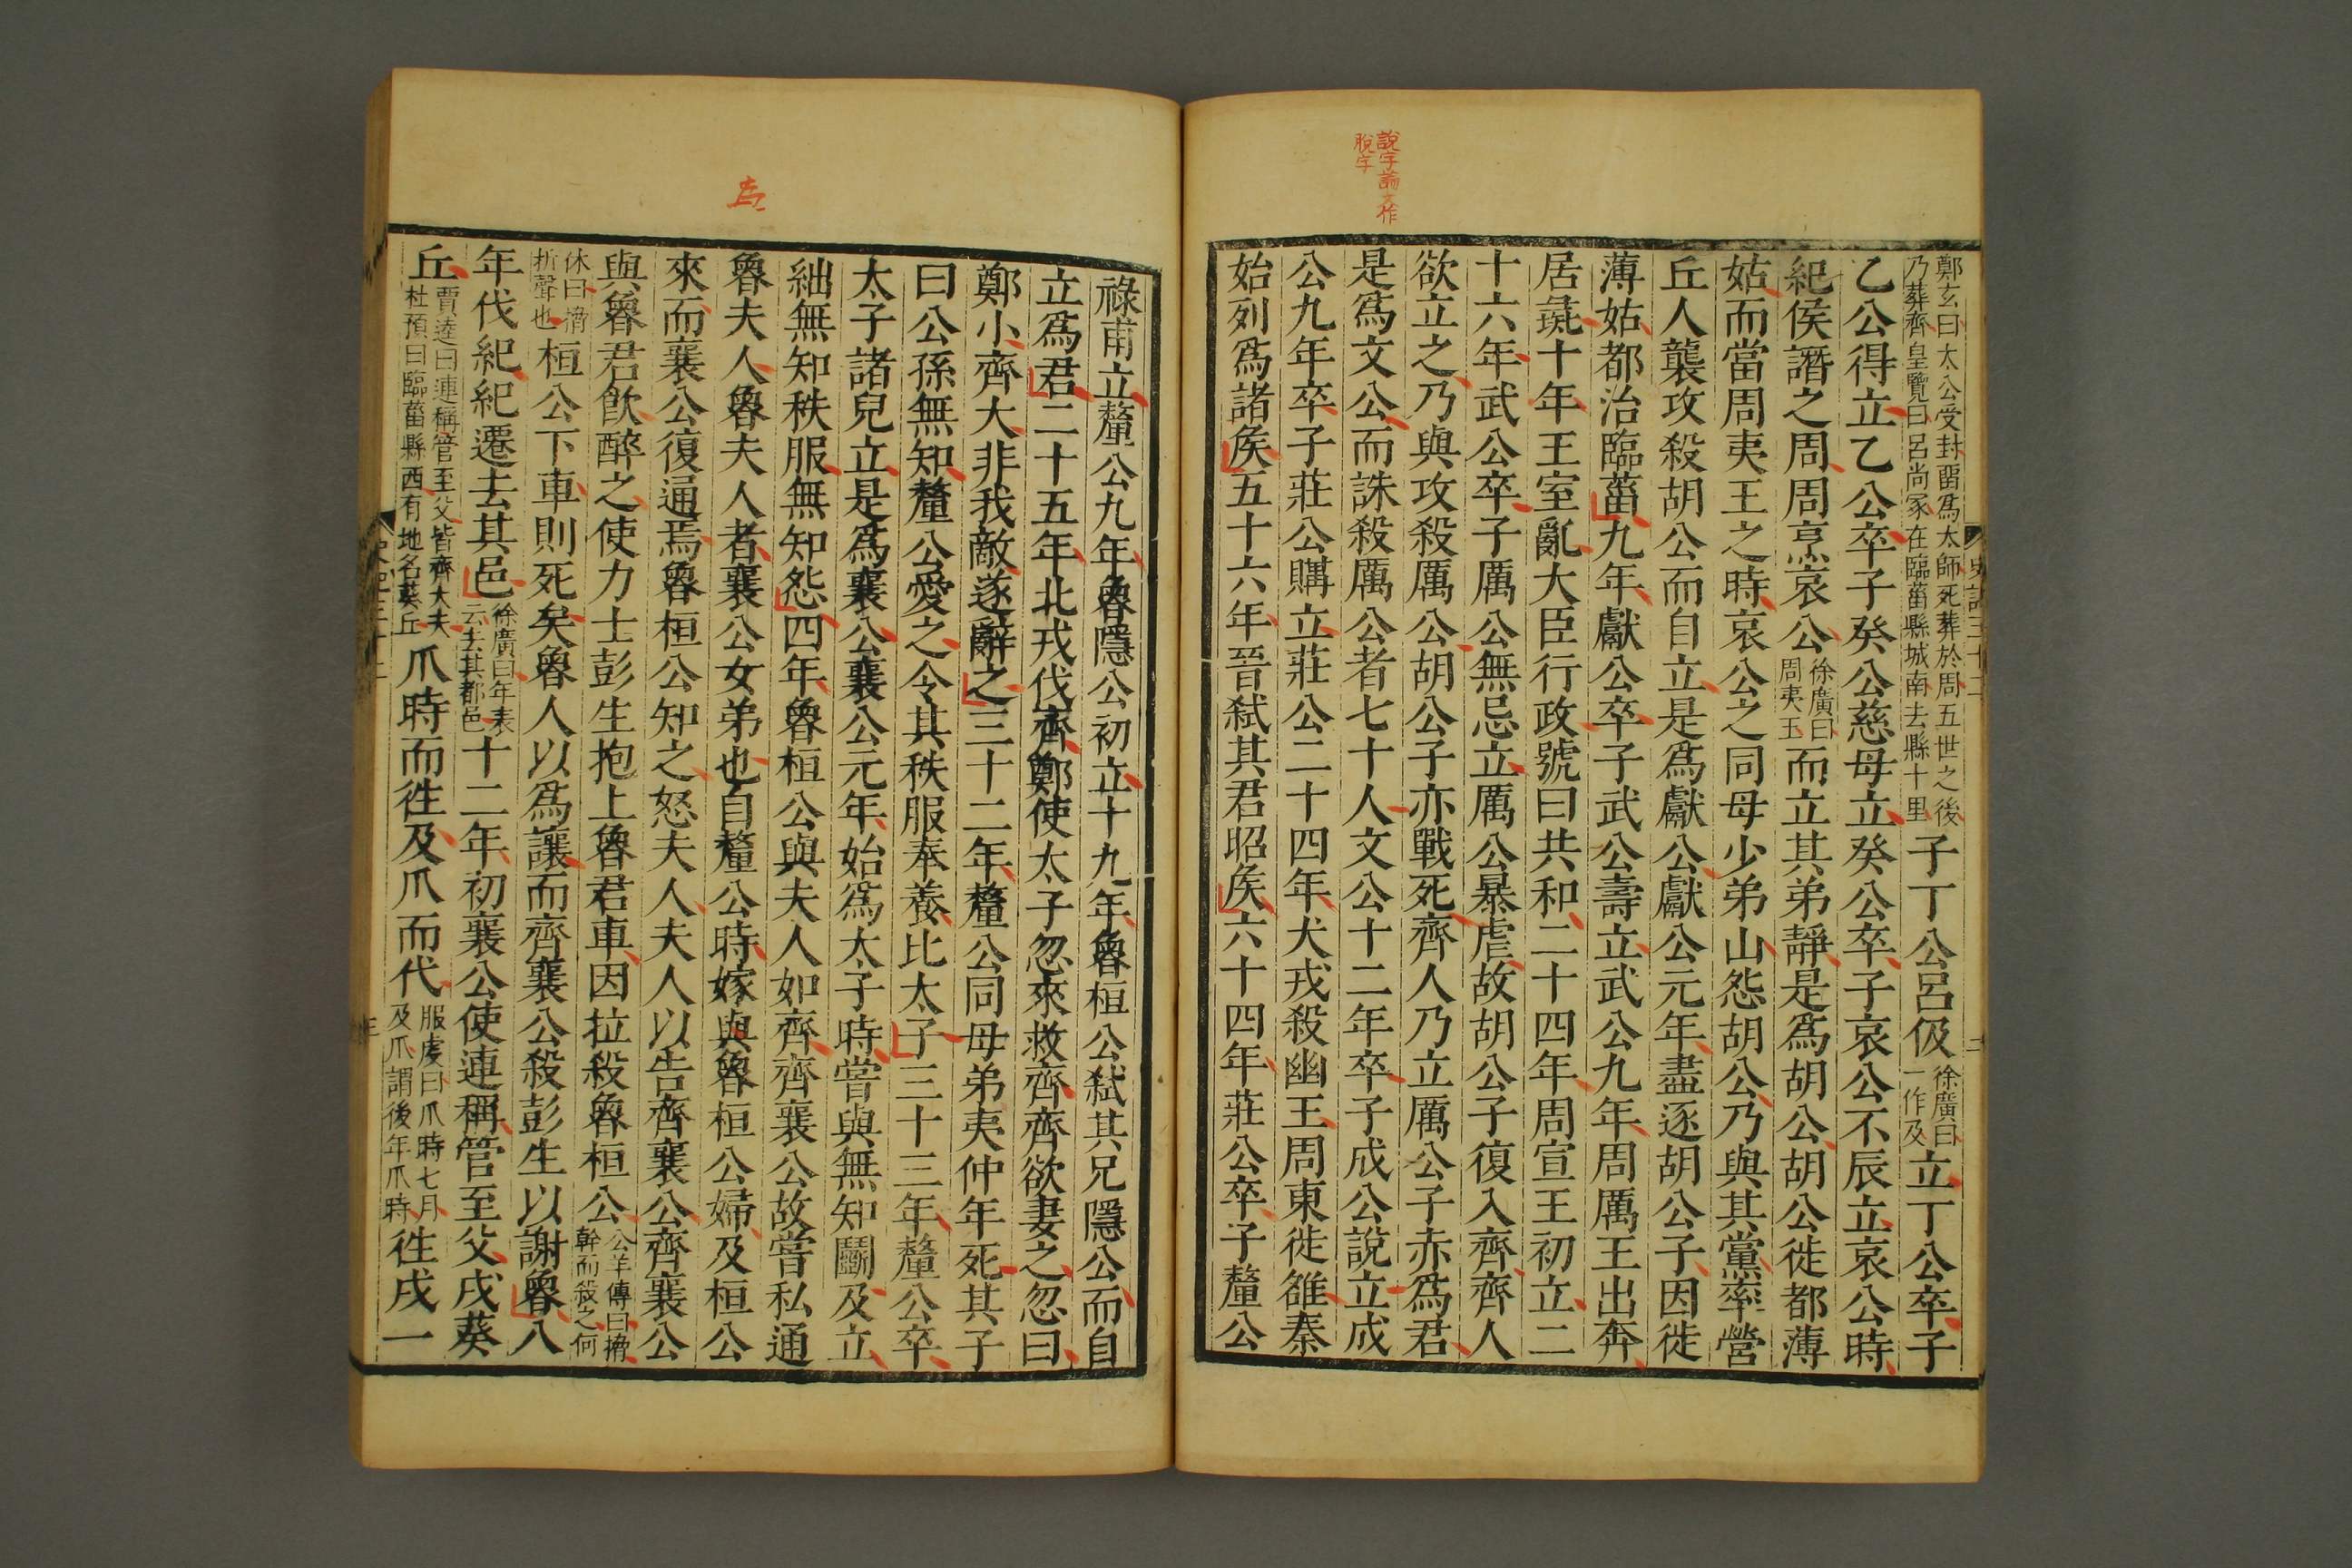 說字論衡作
脫字
鄭玄曰太公受封畱爲太師死葬於周五世之後
乃葬齊皇覽曰呂尚冢在臨菑縣城南去縣十里
子丁公呂伋
徐廣曰
一作及
立丁公卒子
乙公得立乙公卒子癸公慈母立癸公卒子哀公不辰立哀公時
紀侯譖之周周烹哀公
徐廣曰
周夷王
而立其弟靜是爲胡公胡公徙都薄
姑而當周夷王之時哀公之同母少弟山怨胡公乃與其黨率營
丘人襲攻殺胡公而自立是爲獻公獻公元年盡逐胡公子因徙
薄姑都治臨菑九年獻公卒子武公壽立武公九年周厲王出奔
居彘十年王室亂大臣行政號曰共和二十四年周宣王初立二
十六年武公卒子厲公無忌立厲公暴虐故胡公子復入齊齊人
欲立之乃與攻殺厲公胡公子亦戰死齊人乃立厲公子赤爲君
是爲文公而誅殺厲公者七十人文公十二年卒子成公說立成
公九年卒子莊公購立莊公二十四年犬戎殺幽王周東徙雒秦
始列爲諸侯五十六年晉弑其君昭侯六十四年莊公卒子釐公
祿甫立釐公九年魯隱公初立十九年魯桓公弑其兄隱公而自
立爲君二十五年北戎伐齊鄭使太子忽來救齊齊欲妻之忽曰
鄭小齊大非我敵遂辭之三十二年釐公同母弟夷仲年死其子
曰公孫無知釐公愛之令其秩服奉養比太子三十三年釐公卒
太子諸兒立是爲襄公襄公元年始爲太子時嘗與無知鬭及立
絀無知秩服無知怨四年魯桓公與夫人如齊齊襄公故嘗私通
魯夫人魯夫人者襄公女弟也自釐公時嫁與魯桓公婦及桓公
來而襄公復通焉魯桓公知之怒夫人夫人以告齊襄公齊襄公
與魯君飲醉之使力士彭生抱上魯君車因拉殺魯桓公
公羊傳曰搚
幹而殺之何
休曰搚
折聲也
桓公下車則死矣魯人以爲讓而齊襄公殺彭生以謝魯八
年伐紀紀遷去其邑
徐廣曰年表
云去其都邑
十二年初襄公使連稱管至父戍葵
丘
賈逵曰連稱管至父皆齊大夫
杜預曰臨菑縣西有地名葵丘
爪時而徃及爪而代
服虔曰爪時七月
及爪謂後年爪時
徃戍一